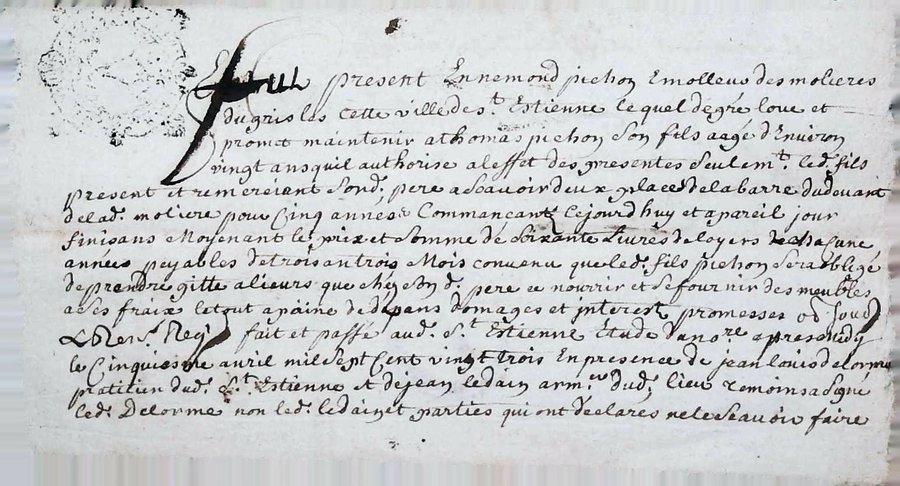 present Ennemond pichon Emolleur des molieres
du gris les cette ville de st. Estienne lequel de gré loue et
promet maintenir a thomas pichon son fils aagé d'Environ
vingt ans quil authorise a leffet des presentes seulemt. led. fils
present et remerciant sond. pere a scavoir deux places de la barre du douant
de lad. moliere pour Cinq années Commancants. cejourdhuy et a pareil jour
finisans Moyenant le prix et somme de Soixante Livres de loyers de chacune
années payables de trois an trois Mois convenu que led. fils pichon sera obligé
de prendre gitte alieurs que chéz son d. pere ce nourrir et se fournir des meubles
a ses fraix le tout a paine de dépans domages et interest promesses ob. soud
& Ren. Reg fait et passé aud. St. Estienne Etude du nore. apres midy
le Cinquiesme avril mil sept Cent vingt trois En presence de jean Louis delorme
praticien dud. St. Estienne et de jean ledain armeur. dud. lieu temoins a signé
led. Delorme non led. ledain et parties qui ont declares ne le scavoir faire